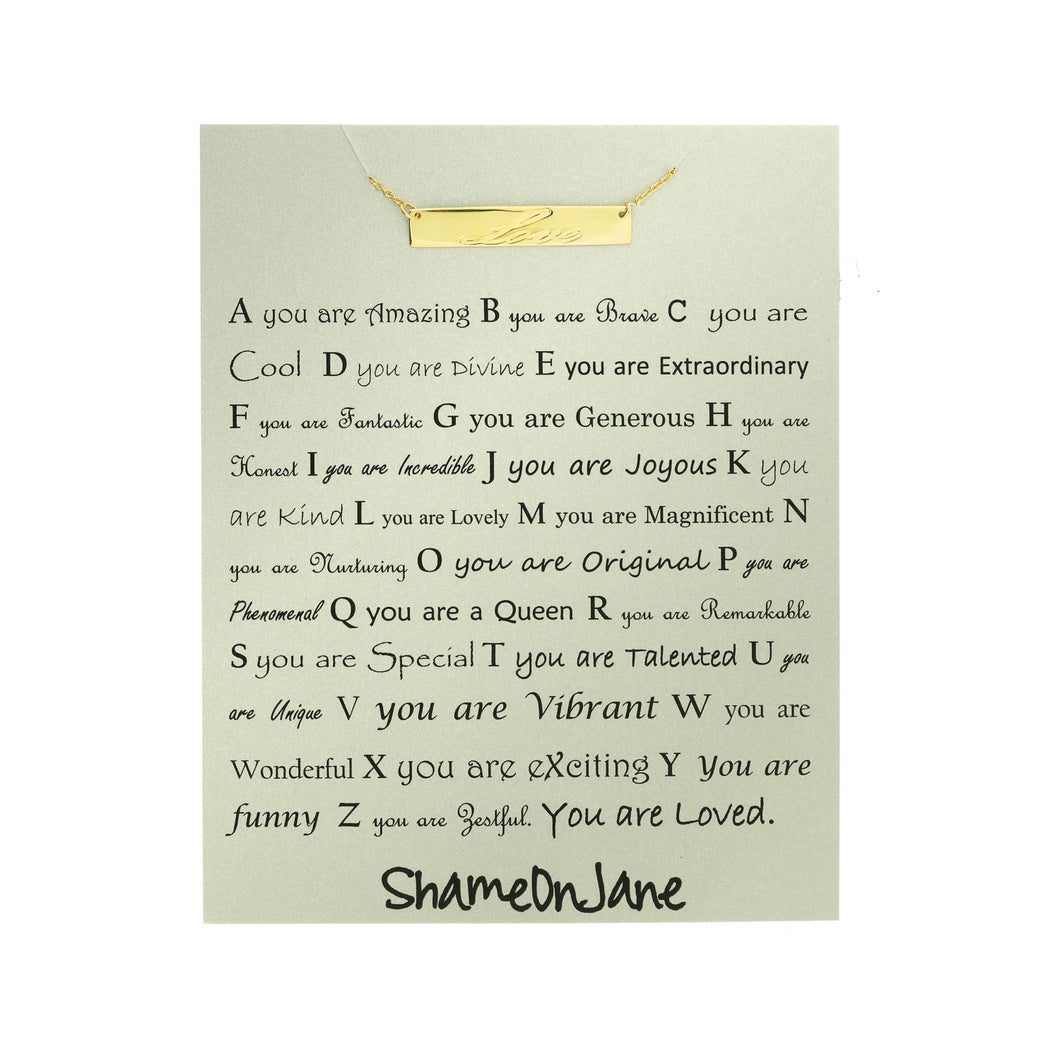 Love
A you are Amazing B you are Brave C you are
Cool D you are Divine E you are Extraordinary
F you are Fantastic G you are Generous H you are
Honest I you are Incredible J you are Joyous K you
are Kind L you are Lovely M you are Magnificent N
you are Nurturing O you are Original P you are
Phenomenal Q you are a Queen R you are Remarkable
S you are Special T you are Talented U you
are Unique V you are Vibrant W you are
Wonderful X you are eXciting Y You are
funny Z you are Zestful. You are Loved.
ShameOnJane